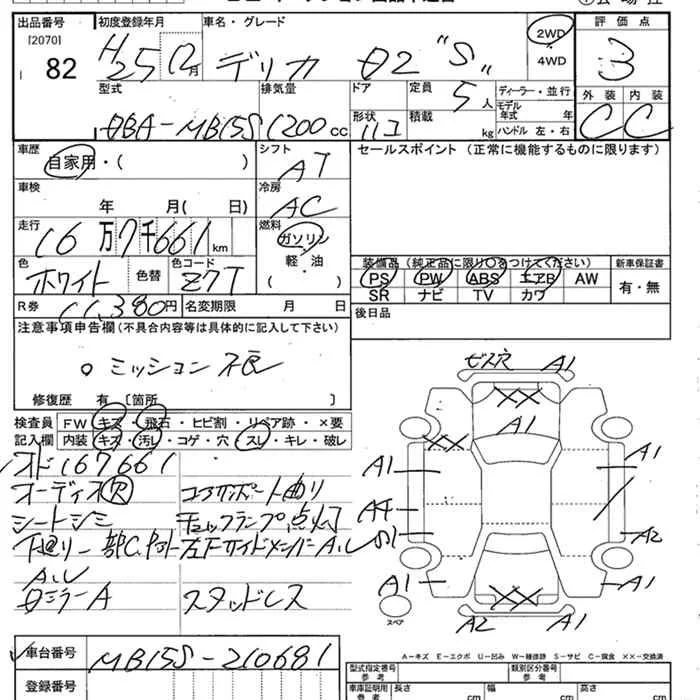 出品番号
[2070]
82
初度登録年月
H25 12月
車名・グレード
デリカ D2 "S"
2WD
・
4WD
評価点
3
外装 内装
C C
型式
DBA-MB15S
排気量
1200cc
ドア
形状
定員
5人
積載
kg
ディーラー・並行
モデル
年式 年
ハンドル 左・右
車歴
自家用・( )
シフト
AT
セールスポイント (正常に機能するものに限ります)
車検
年 月( 日)
冷房
AC
走行
16万7千661km
燃料
ガソリン
・
軽・油
( )
色
ホワイト
色替
色コード
Z7T
装備品 (純正品に限り○をつけてください)
PS PW ABS エアB AW
SR ナビ TV カワ
新車保証書
有・無
R券
11,380円
名変期限 月 日
後日品
注意事項申告欄(不具合内容等は具体的に記入して下さい)
○ ミッション不良
修復歴 有 〔箇所 〕
検査員
記入欄
FW キズ・飛石・ヒビ割・リペア跡・×要
内装 キズ・汚レ・コゲ・穴・スレ・キレ・破レ
オド167661
オーディオ穴
コアサポート曲り
シートシミ
チェックランプ点灯
左Fサイドメンバー A.U
A.U
ミラーA
スタッドレス
ビス穴 A1
XX
A1
XX
A1
A1
A1
A2
A1
A1
XX
A2 A1
スペア
A－キズ E－エクボ U－凹み W－補修跡 S－サビ C－腐食 ××－交換済
車台番号
MB15S-210681
登録番号
型式指定番号
参考
類別区分番号
参考
車庫証明用
参考
長さ
cm
幅
cm
高さ
cm